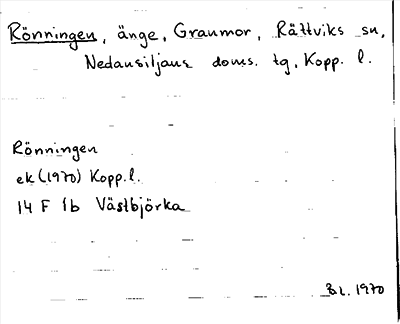 Rönningen, änge, Granmor, Rättviks sn,
Nedansiljans doms. tg, Kopp. l.
Rönningen
ek (1970) Kopp. l.
14 F 1b Västbjörka
B.L. 1970